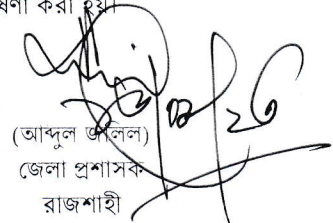 ষণা করা হয়।
(আব্দুল জলিল)
জেলা প্রশাসক
রাজশাহী